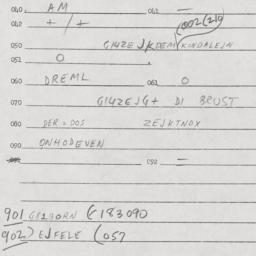 040. AM 041 —
042 + / + 002(219
050 GI4ZEJKDEM KINDALEJN
051 O
060 DREML 061 O
070 GI4ZEJG+ DI BRUST
080 DER = DOS ZEJKTNOX
090 ONHODEVEN
092 =
901 (183090
902) EJFELE (057